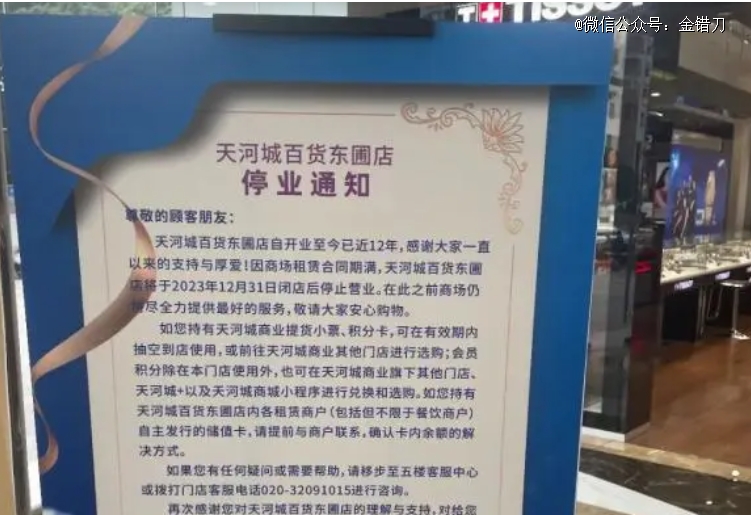 TISSOT
@微信公众号：金错刀
天河城百货东圃店
停业通知
尊敬的顾客朋友：
天河城百货东圃店自开业至今已近12年，感谢大家一直
以来的支持与厚爱！因商场租赁合同期满，天河城百货东圃
店将于2023年12月31日闭店后停止营业。在此之前商场仍
将尽全力提供最好的服务，敬请大家安心购物。
如您持有天河城商业提货小票、积分卡，可在有效期内
抽空到店使用，或前往天河城商业其他门店进行选购；会员
积分除在本门店使用外，也可在天河城商业旗下其他门店、
天河城+以及天河城商城小程序进行兑换和选购。如您持有
天河城百货东圃店内各租赁商户（包括但不限于餐饮商户）
自主发行的储值卡，请提前与商户联系，确认卡内余额的解
决方式。
如果您有任何疑问或需要帮助，请移步至五楼客服中心
或拨打门店客服电话020-32091015进行咨询。
再次感谢您对天河城百货东圃店的理解与支持，对给您